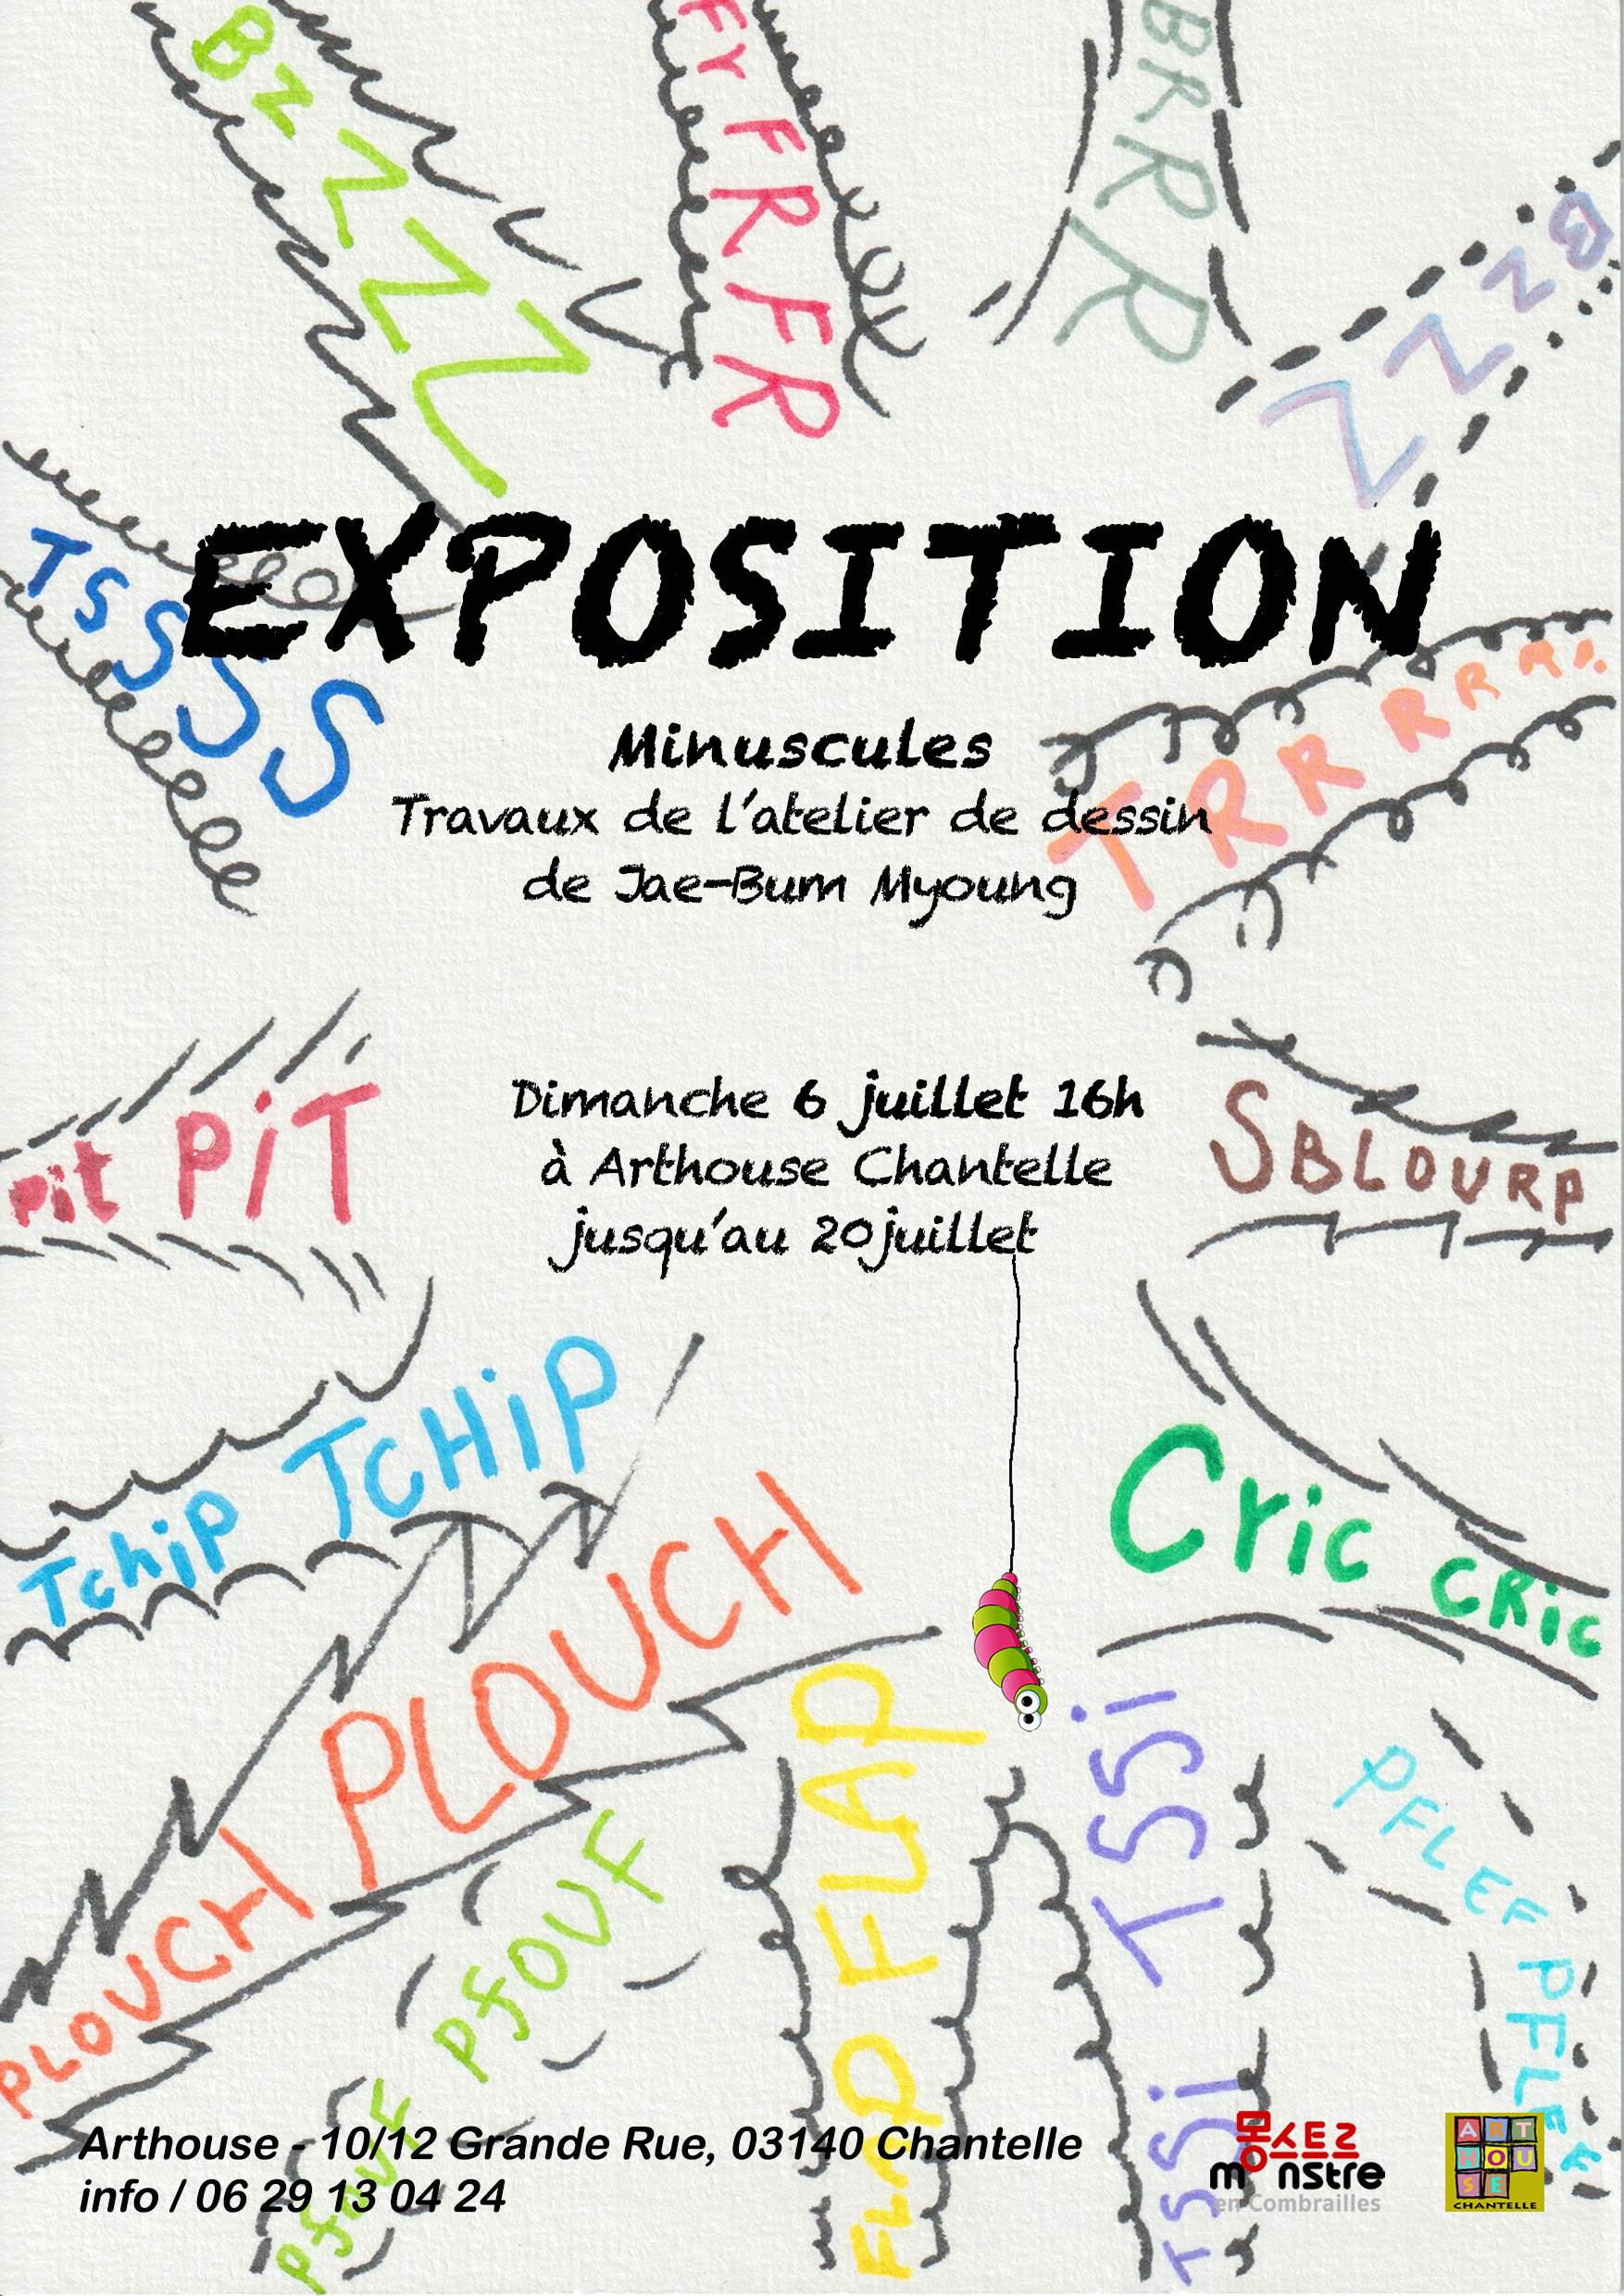 BZZZZZ
FY FRFR
BRRR
BZZZZ
TSSSS
EXPOSITION
TRRRRR
Minuscules
Travaux de l'atelier de dessin
de Jae-Bum Myoung
pit PiT
Dimanche 6 juillet 16h
à Arthouse Chantelle
jusqu'au 20juillet
SBLOURP
Tchip TCHiP
Cric CRic
PLOUCH PLOUCH
PfOUF PfOUF
FLAP FLAP FLAP
TSSi TSSi
PFLEF PFLEF
Arthouse - 10/12 Grande Rue, 03140 Chantelle
info / 06 29 13 04 24
몽스트르
monstre
en Combrailles
ART
HOU
SE
CHANTELLE